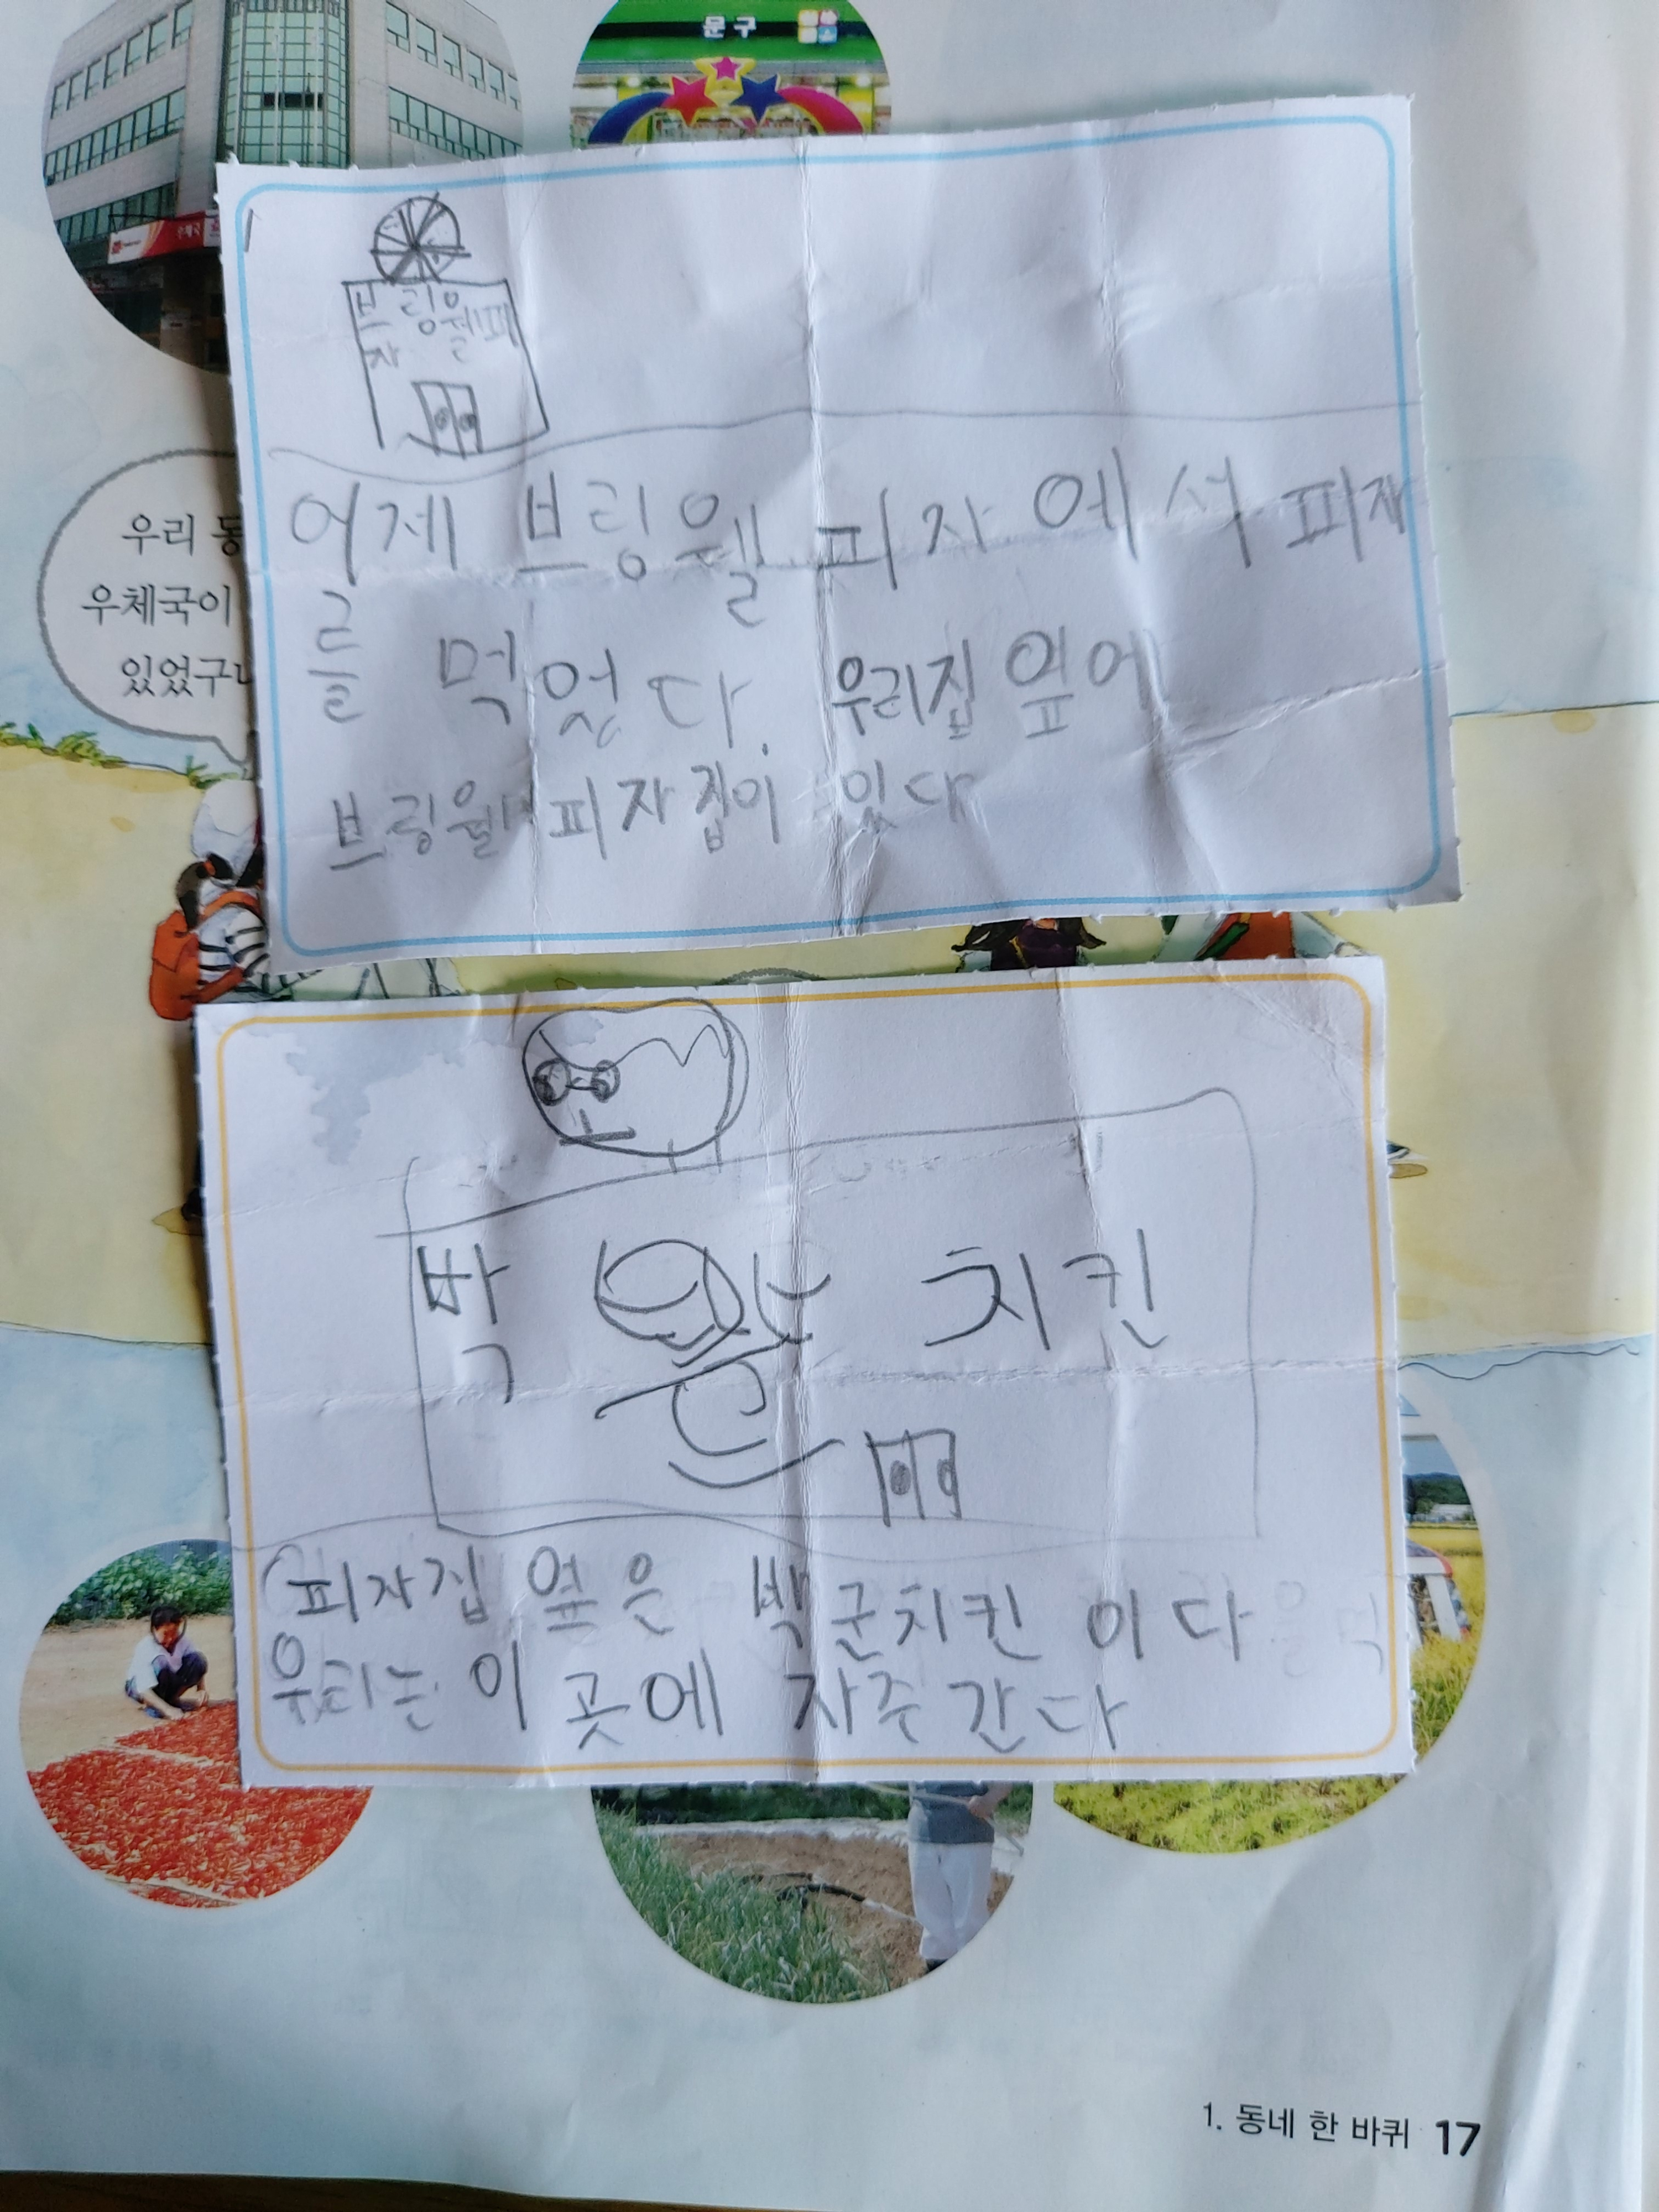 문구
우체국
우리 동
우체국이
있었구나
브링웰피
자
어제 브링웰 피자 에서 피자
를 먹었다. 우리집 옆에
브링웰 피자집이 있다
박 치킨
피자집 옆은 박군치킨 이다
우리는 이 곳에 자주 간다
1. 동네 한 바퀴 17